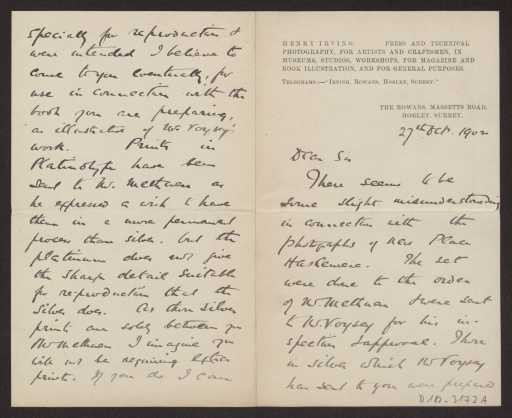 HENRY IRVING. PRESS AND TECHNICAL
PHOTOGRAPHY, FOR ARTISTS AND CRAFTSMEN, IN
MUSEUMS, STUDIOS, WORKSHOPS, FOR MAGAZINE AND
BOOK ILLUSTRATION, AND FOR GENERAL PURPOSES.
TELEGRAMS:—"IRVING, ROWANS, HORLEY, SURREY."
THE ROWANS, MASSETTS ROAD,
HORLEY, SURREY.
27th Oct. 1902
Dear Sir
There seems to be
some slight misunderstanding
in connection with the
photographs of New Place
Haslemere. The set
were done to the order
of Mr Methuen & were sent
to Mr Voysey for his in-
spection & approval. Those
in silver which Mr Voysey
has sent to you were prepared
specially for reproduction &
were intended I believe to
come to you eventually, for
use in connection with the
book you are preparing,
as illustrative of Mr Voysey's
work. Prints in
Platinotype have been
sent to Mr. Methuen as
he expressed a wish to have
them in a more permanent
process than silver. but the
platinum does not give
the sharp detail suitable
for re-production that the
silver does. As these silver
prints are solely between you
& Mr Methuen I imagine you
will not be requiring extra
prints. If you do I can